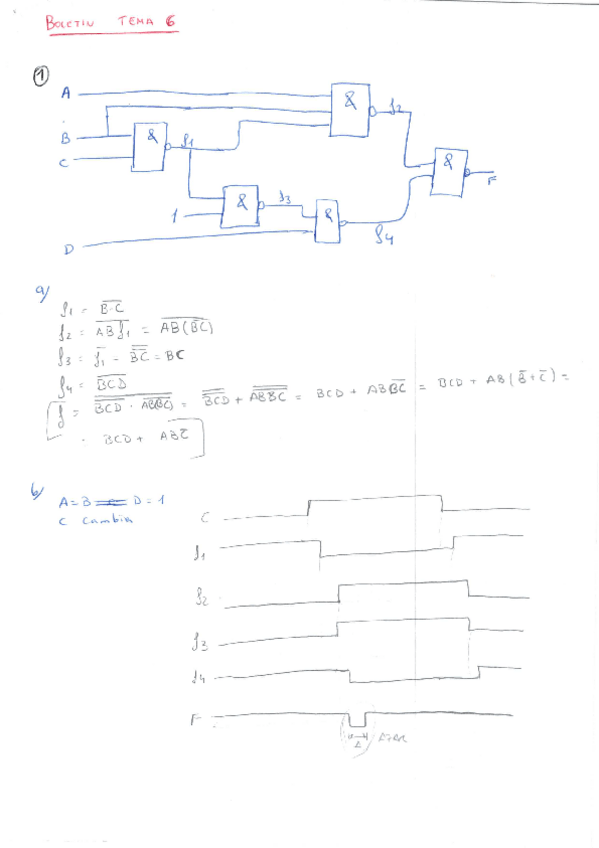 BOLETIN TEMA 6
1
A
&
f2
B
&
f1
C
&
F
&
f3
&
1
f4
D
a)
f1 = \overline{B·C}
f2 = \overline{ABf1} = \overline{AB(\overline{BC})}
f3 = \overline{f1} = \overline{\overline{BC}} = BC
f4 = \overline{BCD}
f = \overline{\overline{BCD} · \overline{AB(\overline{BC})}} = \overline{\overline{BCD}} + \overline{\overline{AB\overline{BC}}} = BCD + AB\overline{BC} = BCD + AB(\overline{B}+\overline{C}) =
BCD + AB\overline{C}
b)
A=B= D=1
C cambia
C
f1
f2
f3
f4
F
Δ
AZAR